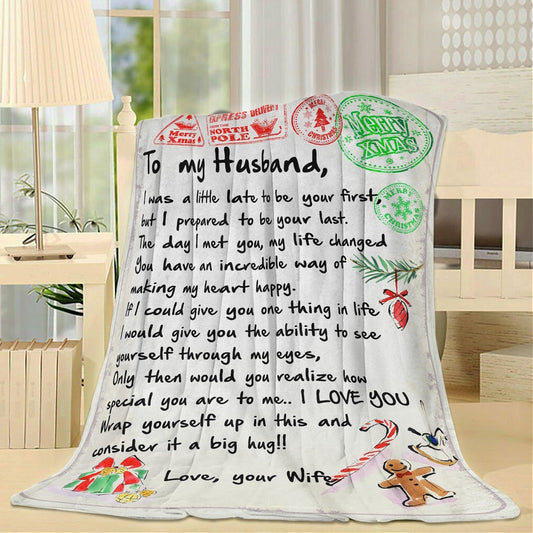 Merry
Xmas
EXPRESS DELIVERY
NORTH
POLE
MERRY
CHRISTMAS
Merry
XMAS
MERRY
CHRISTMAS
To my Husband,
I was a little late to be your first,
but I prepared to be your last.
The day I met you, my life changed
You have an incredible way of
making my heart happy.
If I could give you one thing in life
I would give you the ability to see
yourself through my eyes,
Only then would you realize how
special you are to me.. I LOVE YOU
Wrap yourself up in this and
consider it a big hug!!
Love, your Wife